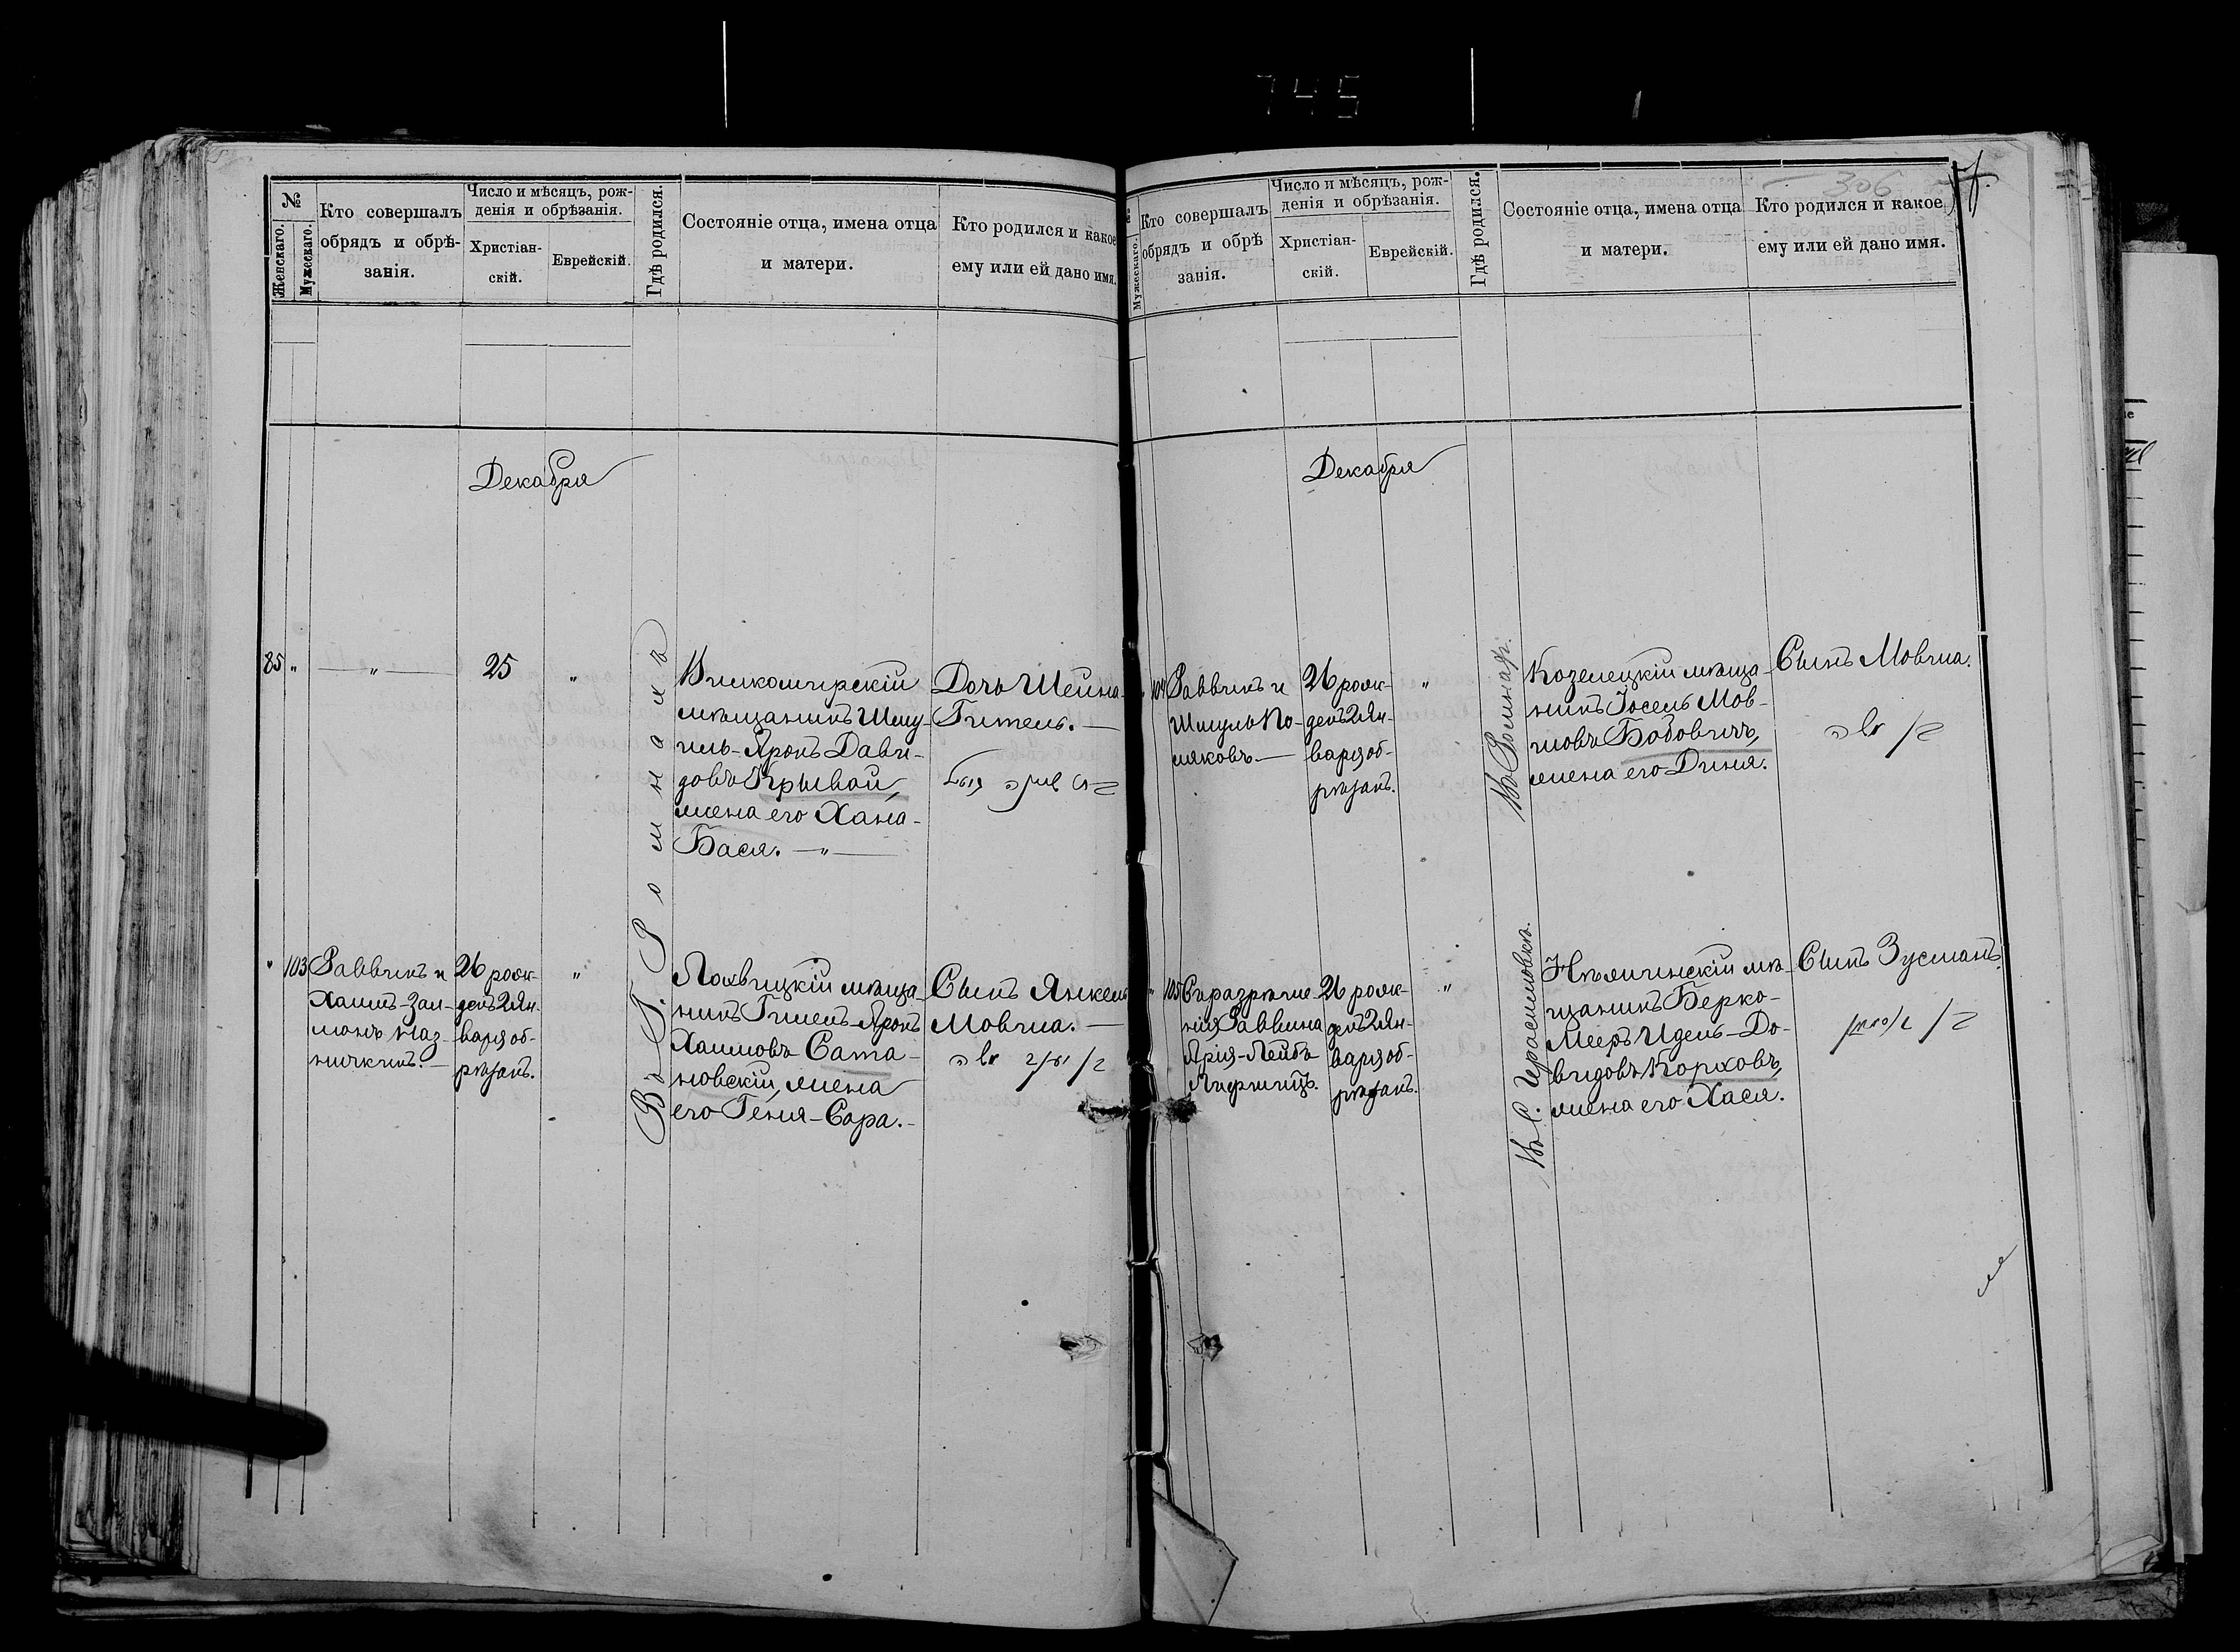 745
№
Женскаго.
Мужескаго.
Кто совершалъ
обрядъ и обрѣ-
занія.
Число и мѣсяцъ, рож-
денія и обрѣзанія.
Христіан-
скій.
Еврейскій.
Гдѣ родился.
Состояніе отца, имена отца
и матери.
Кто родился и какое
ему или ей дано имя.
Декабря
85 " — " — 25 "
Вилкомирскій
мѣщанинъ Шму-
иль-Аронъ Дави-
довъ Крывой,
жена его Хана-
Бася. — " —
Дочь Шейна-
Гитель. —
Въ Г. Ромнахъ
" 103
Раввинъ и
Хаимъ-Зал-
манъ Маз-
ничкинъ. —
26 рож-
денъ 2 Ян-
варя об-
рѣзанъ.
"
Лохвицкій мѣща-
нинъ Гилель-Аронъ
Хаимовъ Сата-
новскій, жена
его Геня-Сора. -
Сынъ Янкель
Мовша. —
306
Мужескаго.
Кто совершалъ
обрядъ и обрѣ
занія.
Число и мѣсяцъ, рож-
денія и обрѣзанія.
Христіан-
скій.
Еврейскій.
Гдѣ родился.
Состояніе отца, имена отца
и матери.
Кто родился и какое
ему или ей дано имя.
Декабря
104
Раввинъ и
Шмуль По-
ляковъ —
26 рож-
денъ 2 Ян-
варя об-
рѣзанъ.
"
Козелецкій мѣща-
нинъ Іосель Мов-
шовъ Бобовичъ,
жена его Дина.
Сынъ Мовша.
משה
בן
" 105
Съ разрѣше-
нія Раввина
Арія-Лейбъ
Лифшицъ.
26 рож-
денъ 2 Ян-
варя об-
рѣзанъ.
"
Въ С. Герасимовкѣ.
Нѣжинскій мѣ-
щанинъ Берко-
Мееръ Идель-До-
видовъ Корховъ,
жена его Хася.
Сынъ Зусманъ.